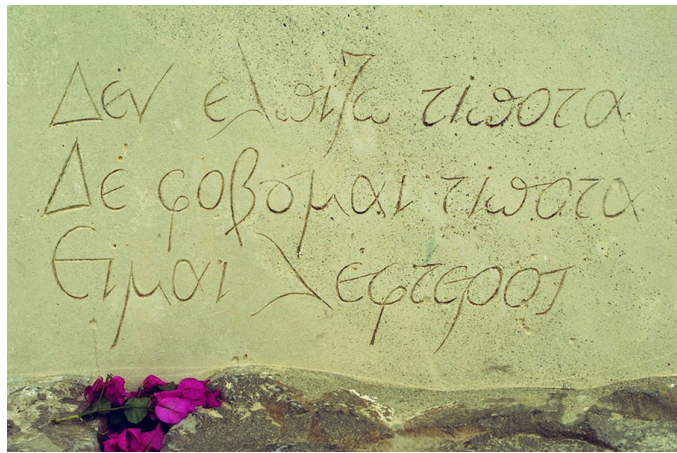 Δέν ελπίζω τίποτα
Δέ φοβομαι τίποτα
Ειμαι λεφτερος